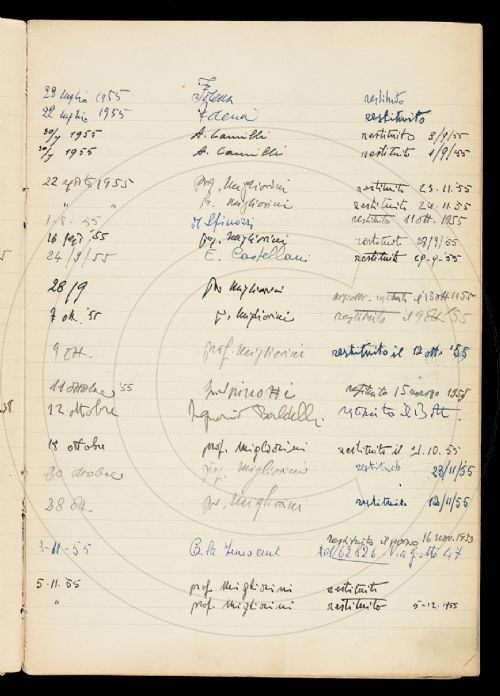 22 luglio 1955 Folena restituito
22 luglio 1955 Folena restituito
30/7 1955 A. Camilli restituito 3/9/55
30/7 1955 A. Camilli restituito 1/9/55
22 agosto 1955 prof. Migliorini restituito 23.11.55
" " pr. Migliorini restituito 24.11.55
55 restituito 11 ott. 1955
16 sett '55 prof. Migliorini restituito 28/9/55
24/9/55 E. Castellani restituito
28/9 pr. Migliorini restituito il 13 ott 1955
7 ott. '55 p. Migliorini restituito il 9 ott '55
9 ott. prof. Migliorini restituito il 12 ott. '55
11 ottobre '55 restituito 15 marzo
12 ottobre Ignazio Baldelli restituito il 13 ott.
18 ottobre prof. Migliorini restituito il 21.10.55
20 ottobre prof. Migliorini restituito 23/11/55
28 ott. pr. Migliorini restituito 12/11/55
restituito il giorno 16 nov.
3-11-55 tel/62826 47
5.11.55 prof. Migliorini restituito
" prof. Migliorini restituito 5-12-1955